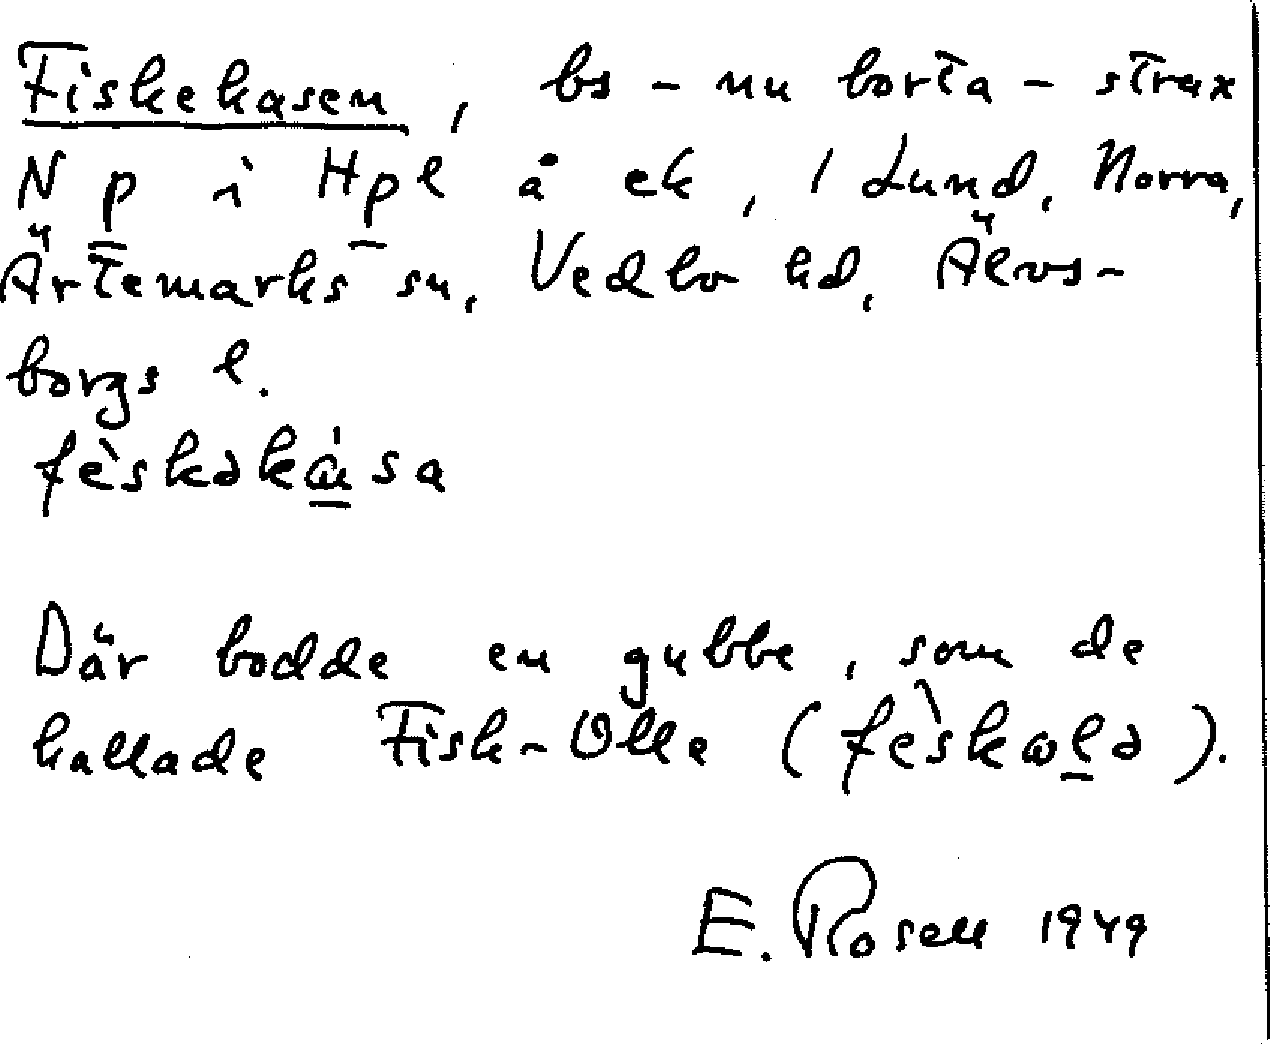 Fiskekasen, bs - nu borta - strax
N p i Hpl å ek, 1 Lund, Norra,
Ärtemarks sn, Vedbo hd, Älvs-
borgs l.
fèskəkɑ́sa
Där bodde en gubbe, som de
kallade Fisk-Olle (fèskolə).
E. Rosell 1949